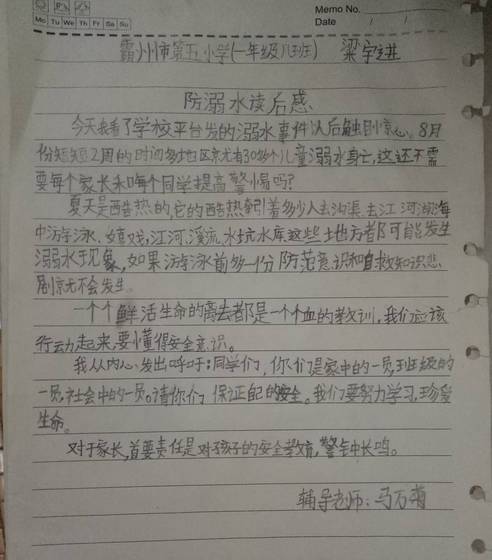 Memo No.
Mo Tu We Th Fr Sa Su
Date / /
霸州市第五小学(一年级八班) 梁宇进
防溺水读后感
今天我看了学校平台发的溺水事件以后触目惊心。8月
份短短2周的时间多地区竟尤有30多个儿童溺水身亡,这还不需
要每个家长和每个同学提高警惕吗?
夏天是酷热的,它的酷热牵引着多少人去沟渠去江河湖海
中游泳、嬉戏,江河、溪流、水坑水库这些地方都可能发生
溺水现象,如果游泳前多一份防范意识和自救知识悲
剧京尤不会发生。
一个个鲜活生命的离去都是一个个血的教训,我们应该
行动起来,要懂得安全意识。
我从内心发出呼吁:同学们,你们是家中的一员,班级的
一员,社会中的一员。请你们保证自己的安全。我们要努力学习,珍爱
生命。
对于家长,首要责任是对孩子的安全教育,警钟长鸣。
辅导老师:马万菊